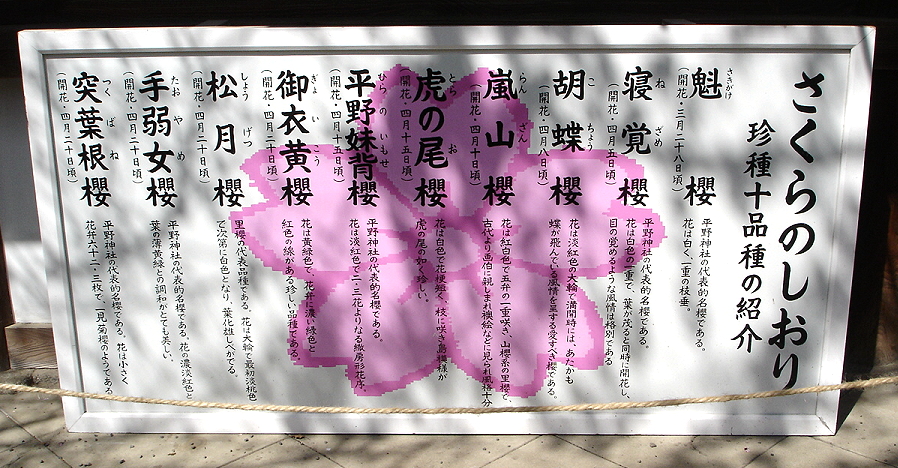 さくらのしおり
珍種十品種の紹介
魁 櫻
さきがけ
(開花・三月二十八日頃)
平野神社の代表的名櫻である。
花は白く、一重の枝垂。
寝覚櫻
ね ざめ
(開花・四月五日頃)
平野神社の代表的名櫻である。
花は白色の一重で、葉が茂ると同時に開花し、
目の覚めるような風情は格別である
胡蝶櫻
こ ちょう
(開花・四月八日頃)
花は淡紅色の大輪で満開時には、あたかも
蝶が飛んでいる風情を呈する愛すべき櫻である。
嵐山櫻
らん ざん
(開花・四月十日頃)
花は紅白色で五弁の一重咲き、山櫻系の里櫻で、
古代より画伯に親しまれ襖絵などに見られ風格十分
虎の尾櫻
とら お
(開花・四月十五日頃)
花は白色で花梗短く、枝に咲き
虎の尾の如く珍しい。
平野妹背櫻
ひらの いもせ
(開花・四月十五日頃)
平野神社の代表的名櫻である。
花は淡紅色で二・三花よりなる繖房形花序。
御衣黄櫻
ぎょ い こう
(開花・四月二十日頃)
花は黄緑色で、花弁に濃い緑色と
紅色の線がある珍しい品種である。
松月櫻
しょう げつ
(開花・四月二十日頃)
里櫻の代表品種である。花は大輪で最初淡桃色
で次第に白色となり、葉化雄しべがでる。
手弱女櫻
たお や め
(開花・四月二十日頃)
平野神社の代表的名櫻である。花の濃淡紅色と
葉の薄黄緑との調和がとても美しい。
突葉根櫻
つく ば ね
(開花・四月二十日頃)
平野神社の代表的名櫻である。花は小さく
花弁六十二・三枚で、一見菊櫻のようである